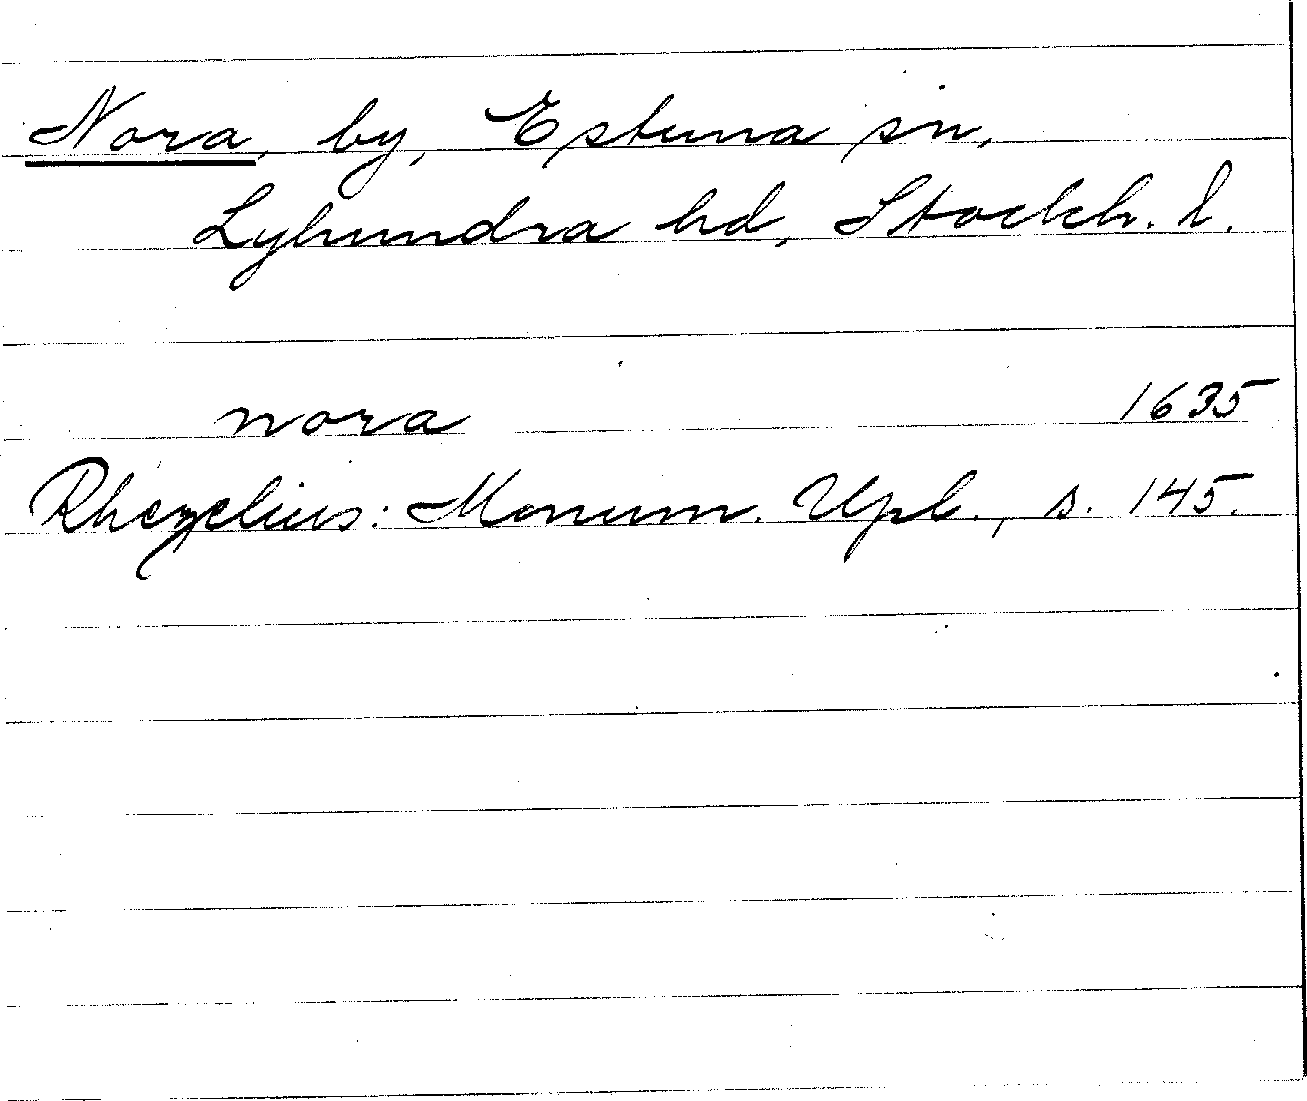 Nora, by, Estuna sn,
Lyhundra hd, Stockh. l.
nora 1635
Rhezelius: Monum. Upl., s. 145.